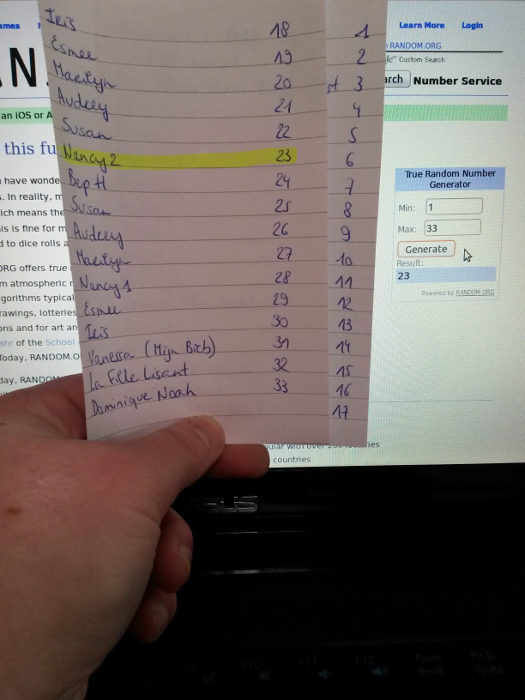 ames
Learn More Login
RANDOM.ORG
Custom Search
N
arch Number Service
an IOS or A
this fu
have wonde
. In reality, m
ich means the
is is fine for m
d to dice rolls a
ORG offers true
m atmospheric
gorithms typical
rawings, lotteries
ons and for art an
ahr of the School
Today, RANDOM.O
day, RANDOM
Iris 18 1
Esmee 19 2
Maertyn 20 st 3
Audrey 21 4
Susan 22 5
Nancy 2 23 6
Bep H 24 7
Susan 25 8
Audrey 26 9
Maertyn 27 10
Nancy 1 28 11
Esmee 29 12
Iris 30 13
Vanessa (Mijn Bieb) 31 14
La Fille Lisant 32 15
Dominique Noah 33 16
17
True Random Number
Generator
Min: 1
Max: 33
Generate
Result:
23
Powered by RANDOM.ORG
countries